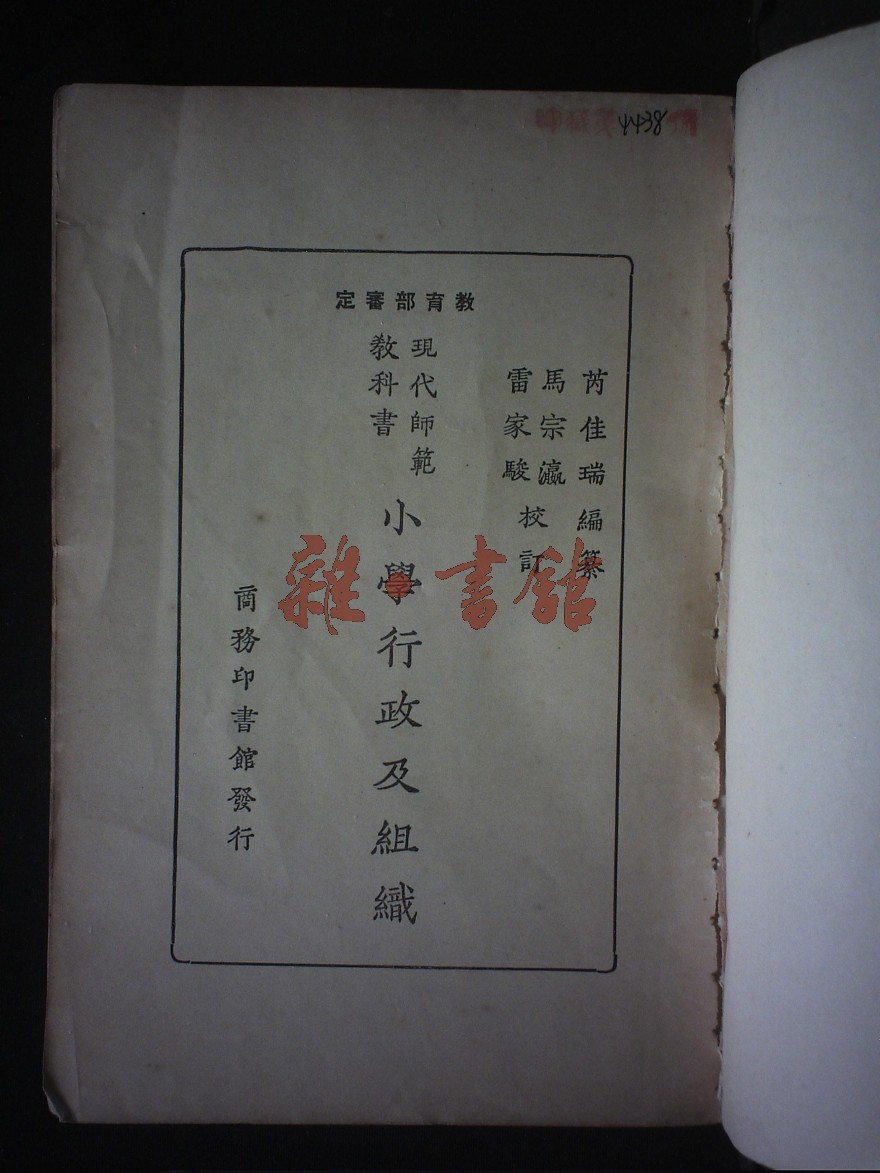 4438
教育部審定
芮佳瑞編纂
馬宗瀛
雷家駿
校訂
現代師範
教科書
小學行政及組織
商務印書館發行
雜書館